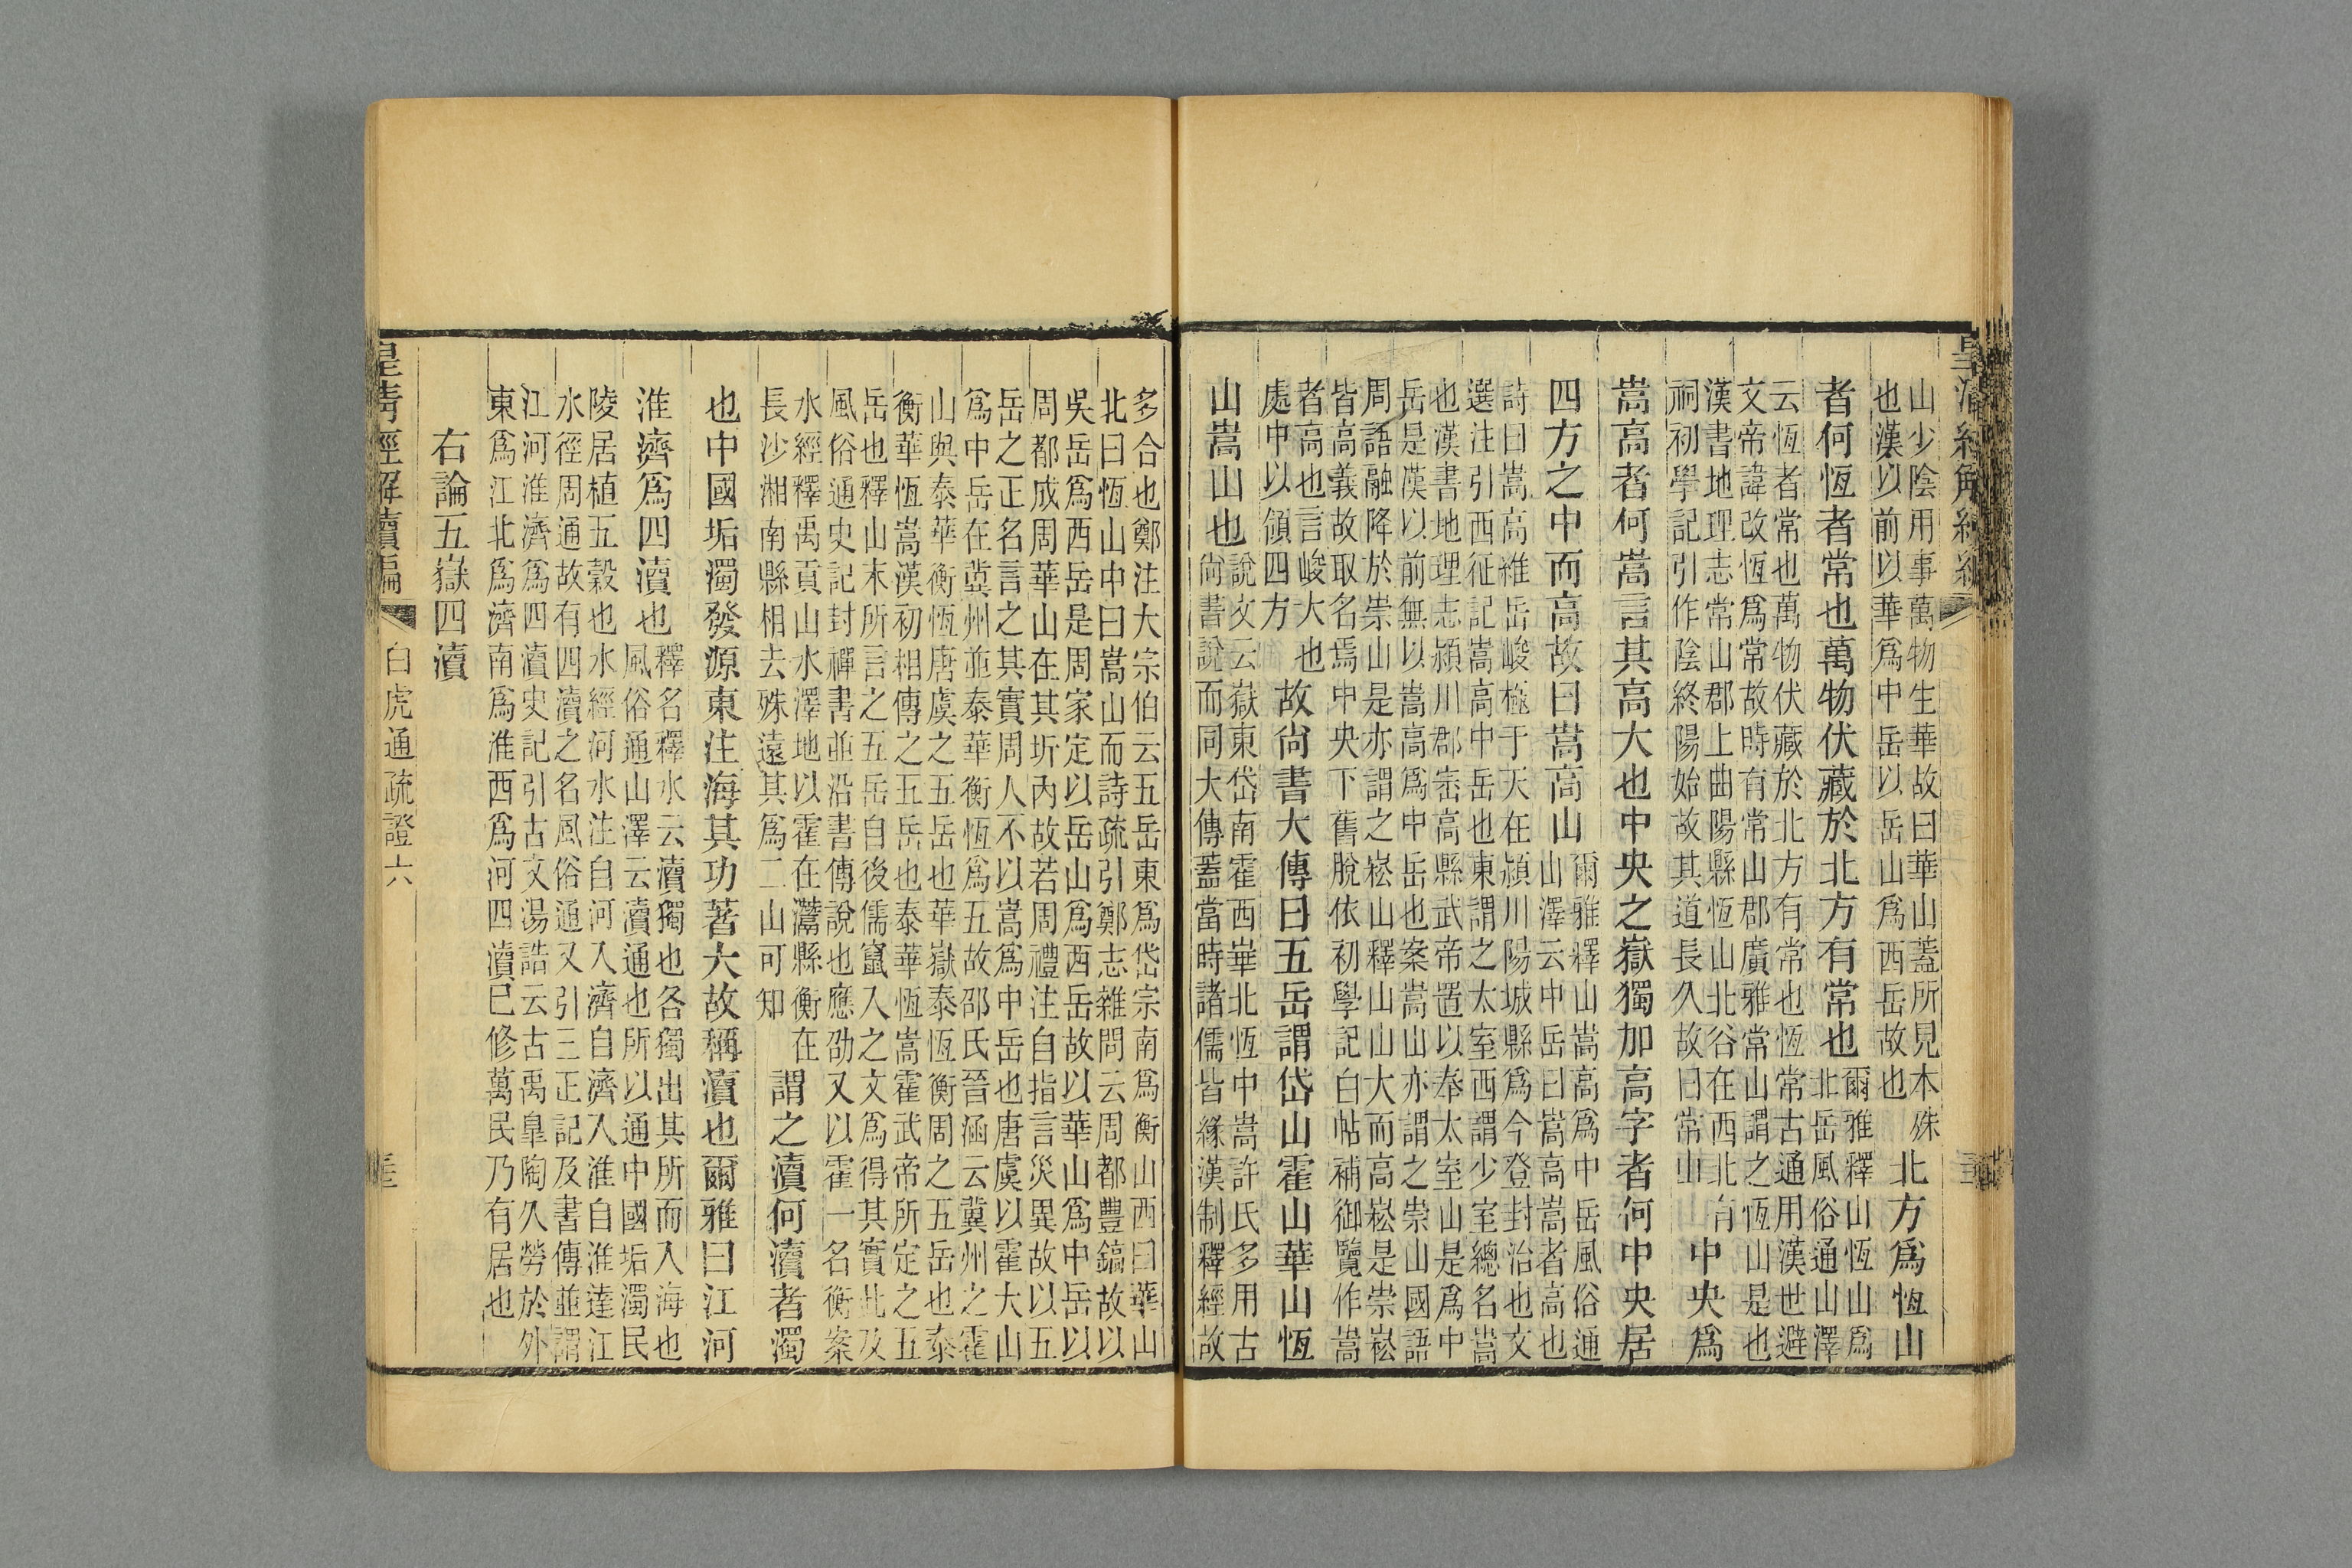 皇清經解續編
山少陰用事萬物生華故曰華山蓋所見本殊
也漢以前以華爲中岳以岳山爲西岳故也
北方爲恆山
者何恆者常也萬物伏藏於北方有常也
爾雅釋山恆山爲
北岳風俗通山澤
云恆者常也萬物伏藏於北方有常也恆常古通用漢世避
文帝諱改恆爲常故時有常山郡廣雅常山謂之恆山是也
漢書地理志常山郡上曲陽縣恆山北谷在西北有
祠初學記引作陰終陽始故其道長久故曰常山
中央爲
嵩高者何嵩言其高大也中央之嶽獨加高字者何中央居
四方之中而高故曰嵩高山
爾雅釋山嵩高爲中岳風俗通
山澤云中岳曰嵩高嵩者高也
詩曰嵩高維岳峻極于天在潁川陽城縣爲今登封治也文
選注引西征記嵩高中岳也東謂之太室西謂少室總名嵩
也漢書地理志潁川郡崈高縣武帝置以奉太室山是爲中
岳是漢以前無以嵩高爲中岳也案嵩山亦謂之崇山國語
周語融降於崇山是亦謂之崧山釋山山大而高崧是崇崧
皆高義故取名焉中央下舊脫依初學記白帖補御覽作嵩
者高也言峻大也
處中以領四方
故尙書大傳曰五岳謂岱山霍山華山恆
山嵩山也
說文云嶽東岱南霍西華北恆中嵩許氏多用古
尙書說而同大傳蓋當時諸儒皆緣漢制釋經故
多合也鄭注大宗伯云五岳東爲岱宗南爲衡山西曰華山
北曰恆山中曰嵩山而詩疏引鄭志雜問云周都豐鎬故以
吳岳爲西岳是周家定以岳山爲西岳故以華山爲中岳以
周都成周華山在其圻內故若周禮注自指言災異故以五
岳之正名言之其實周人不以嵩爲中岳也唐虞以霍大山
爲中岳在冀州並泰華衡恆爲五故邵氏晉涵云冀州之霍
山與泰華衡恆唐虞之五岳也華嶽泰恆衡周之五岳也泰
衡華恆嵩漢初相傳之五岳也泰華恆嵩霍武帝所定之五
岳也釋山末所言之五岳自後儒竄入之文爲得其實此及
風俗通史記封禪書並沿書傳說也應劭又以霍一名衡案
水經釋禹貢山水澤地以霍在灊縣衡在
長沙湘南縣相去殊遠其爲二山可知
謂之瀆何瀆者濁
也中國垢濁發源東注海其功著大故稱瀆也爾雅曰江河
淮濟爲四瀆也
釋名釋水云瀆獨也各獨出其所而入海也
風俗通山澤云瀆通也所以通中國垢濁民
陵居植五穀也水經河水注自河入濟自濟入淮自淮達江
水徑周通故有四瀆之名風俗通又引三正記及書傳並謂
江河淮濟爲四瀆史記引古文湯誥云古禹皐陶久勞於外
東爲江北爲濟南爲淮西爲河四瀆已修萬民乃有居也
右論五嶽四瀆
皇清經解續編
白虎通疏證六